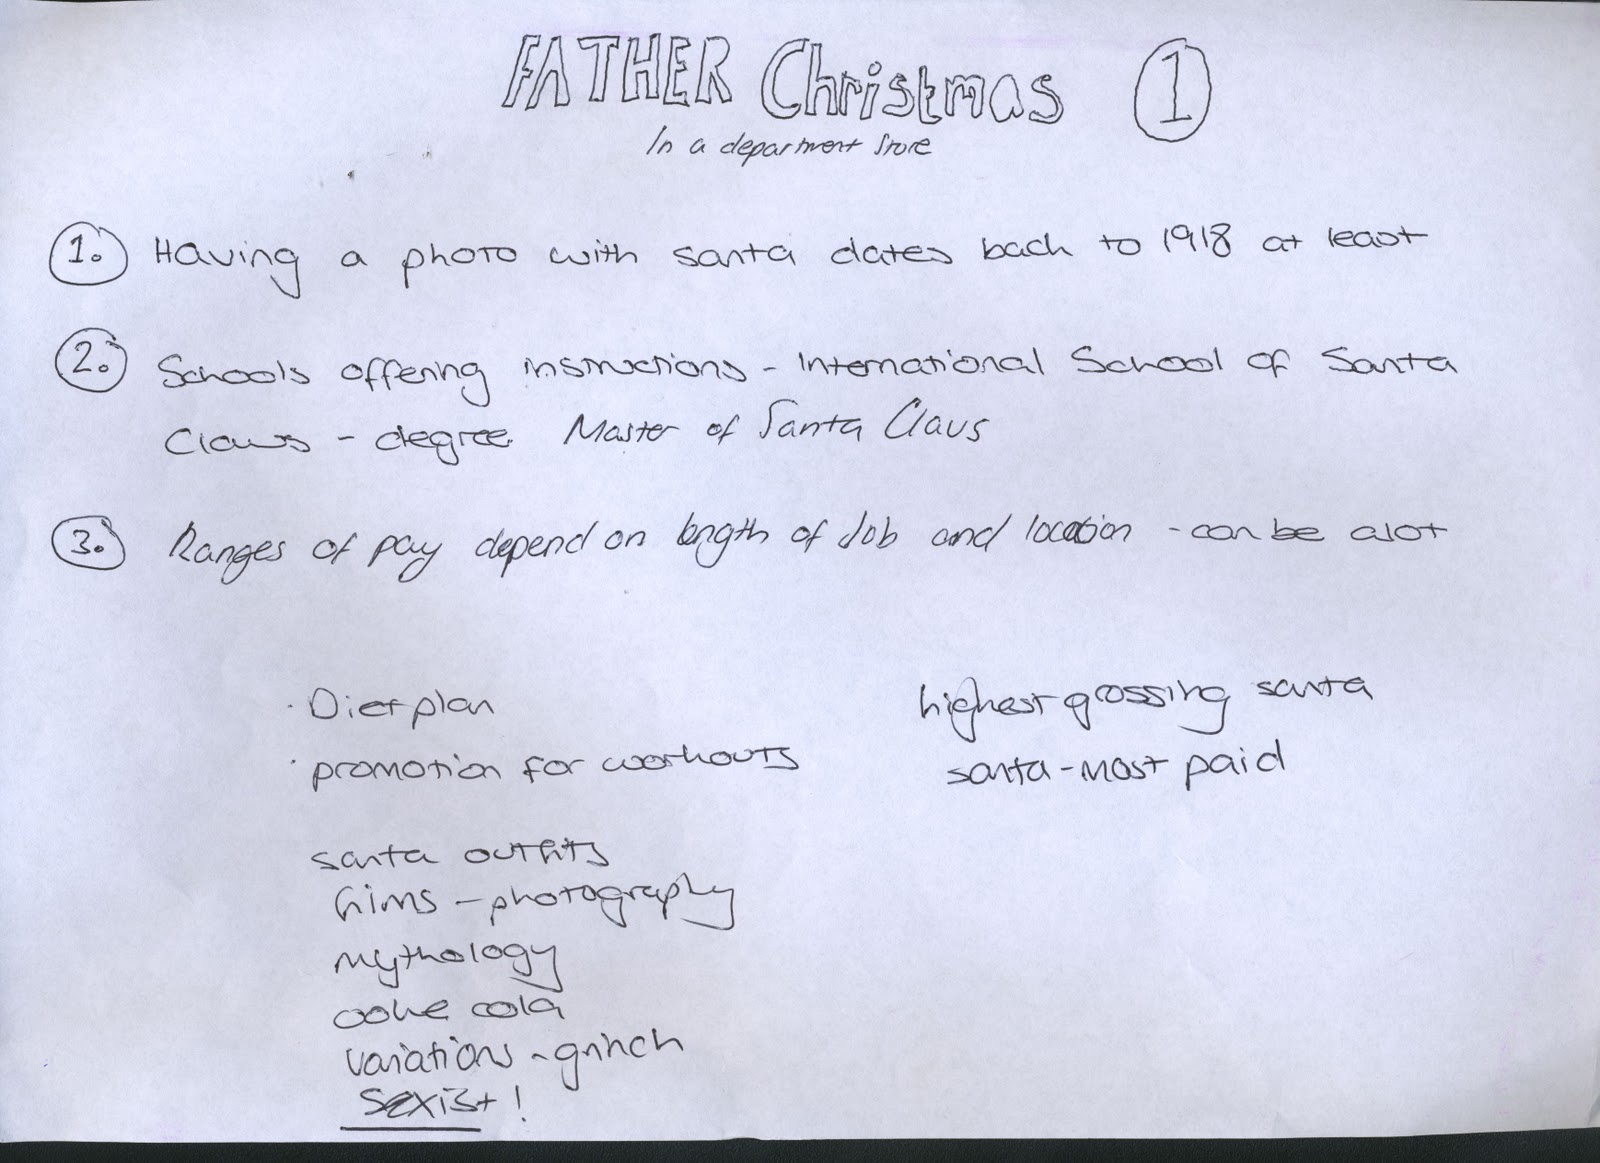 FATHER Christmas 1
In a department store
1. Having a photo with santa dates back to 1918 at least
2. Schools offering instructions - International School of Santa
Claus - degree Master of Santa Claus
3. Ranges of pay depend on length of Job and location - can be alot
· Diet plan
· promotion for workouts
santa outfits
films - photography
mythology
coke cola
variations - grinch
Sexist!
highest grossing santa
santa - most paid